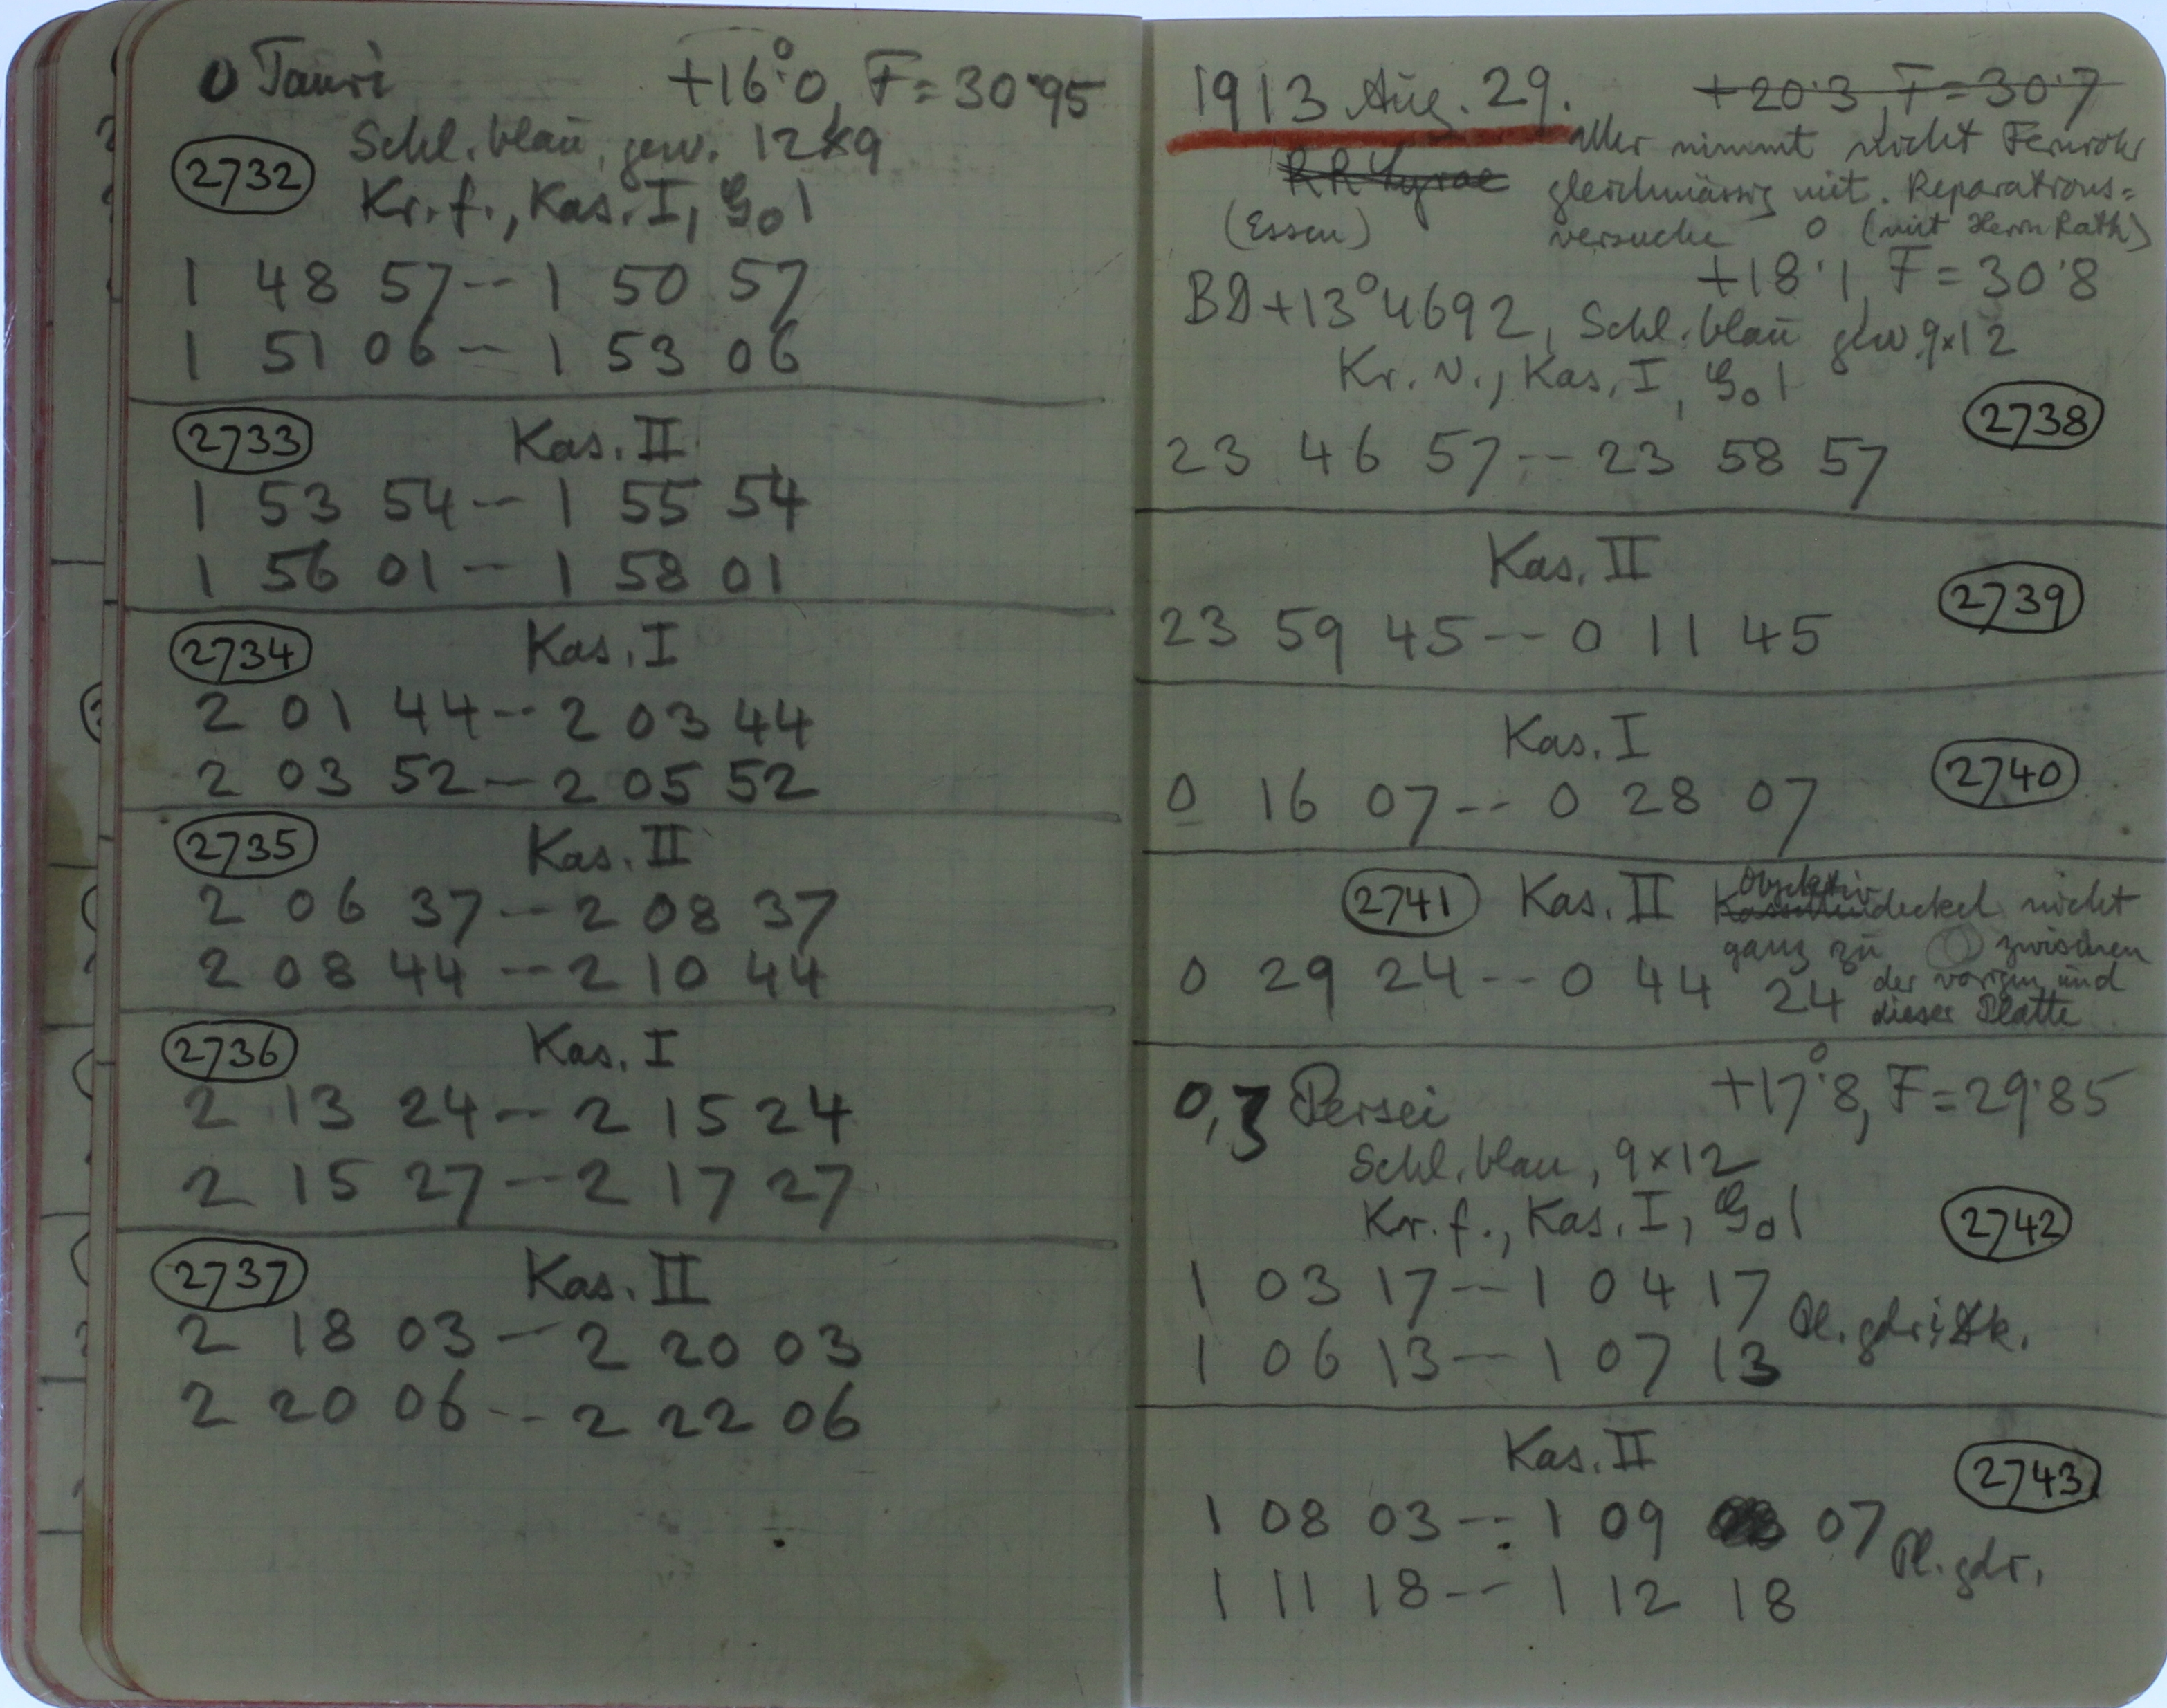 o Tauri +16°.0, F=30.95
2732 Schl. blau, gew. 12x9
Kr. f., Kas. I, G0 1
1 48 57 -- 1 50 57
1 51 06 -- 1 53 06
2733 Kas. II
1 53 54 -- 1 55 54
1 56 01 -- 1 58 01
2734 Kas. I
2 01 44 -- 2 03 44
2 03 52 -- 2 05 52
2735 Kas. II
2 06 37 -- 2 08 37
2 08 44 -- 2 10 44
2736 Kas. I
2 13 24 -- 2 15 24
2 15 27 -- 2 17 27
2737 Kas. II
2 18 03 -- 2 20 03
2 20 06 -- 2 22 06
1913 Aug. 29. +20.3, F=30.7
RR Lyrae Uhr nimmt nicht Fernrohr
gleichmässig mit. Reparations=
(Essen) versuche (mit Herrn Rath)
+18°.1, F=30.8
BD+13°4692, Schl. blau gew. 9x12
Kr. v., Kas. I, G0 1
2738
23 46 57 -- 23 58 57
Kas. II
2739
23 59 45 -- 0 11 45
Kas. I
2740
0 16 07 -- 0 28 07
2741 Kas. II Objektiv
Kassettendeckel nicht
ganz zu zwischen
der vorigen und
dieser Platte
0 29 24 -- 0 44 24
o, ζ Persei +17°.8, F=29.85
Schl. blau, 9x12
Kr. f., Kas. I, G0 1
2742
1 03 17 -- 1 04 17
Pl. gdr.
1 06 13 -- 1 07 13
Kas. II
2743
1 08 03 -- 1 09 07
Pl. gdr.
1 11 18 -- 1 12 18